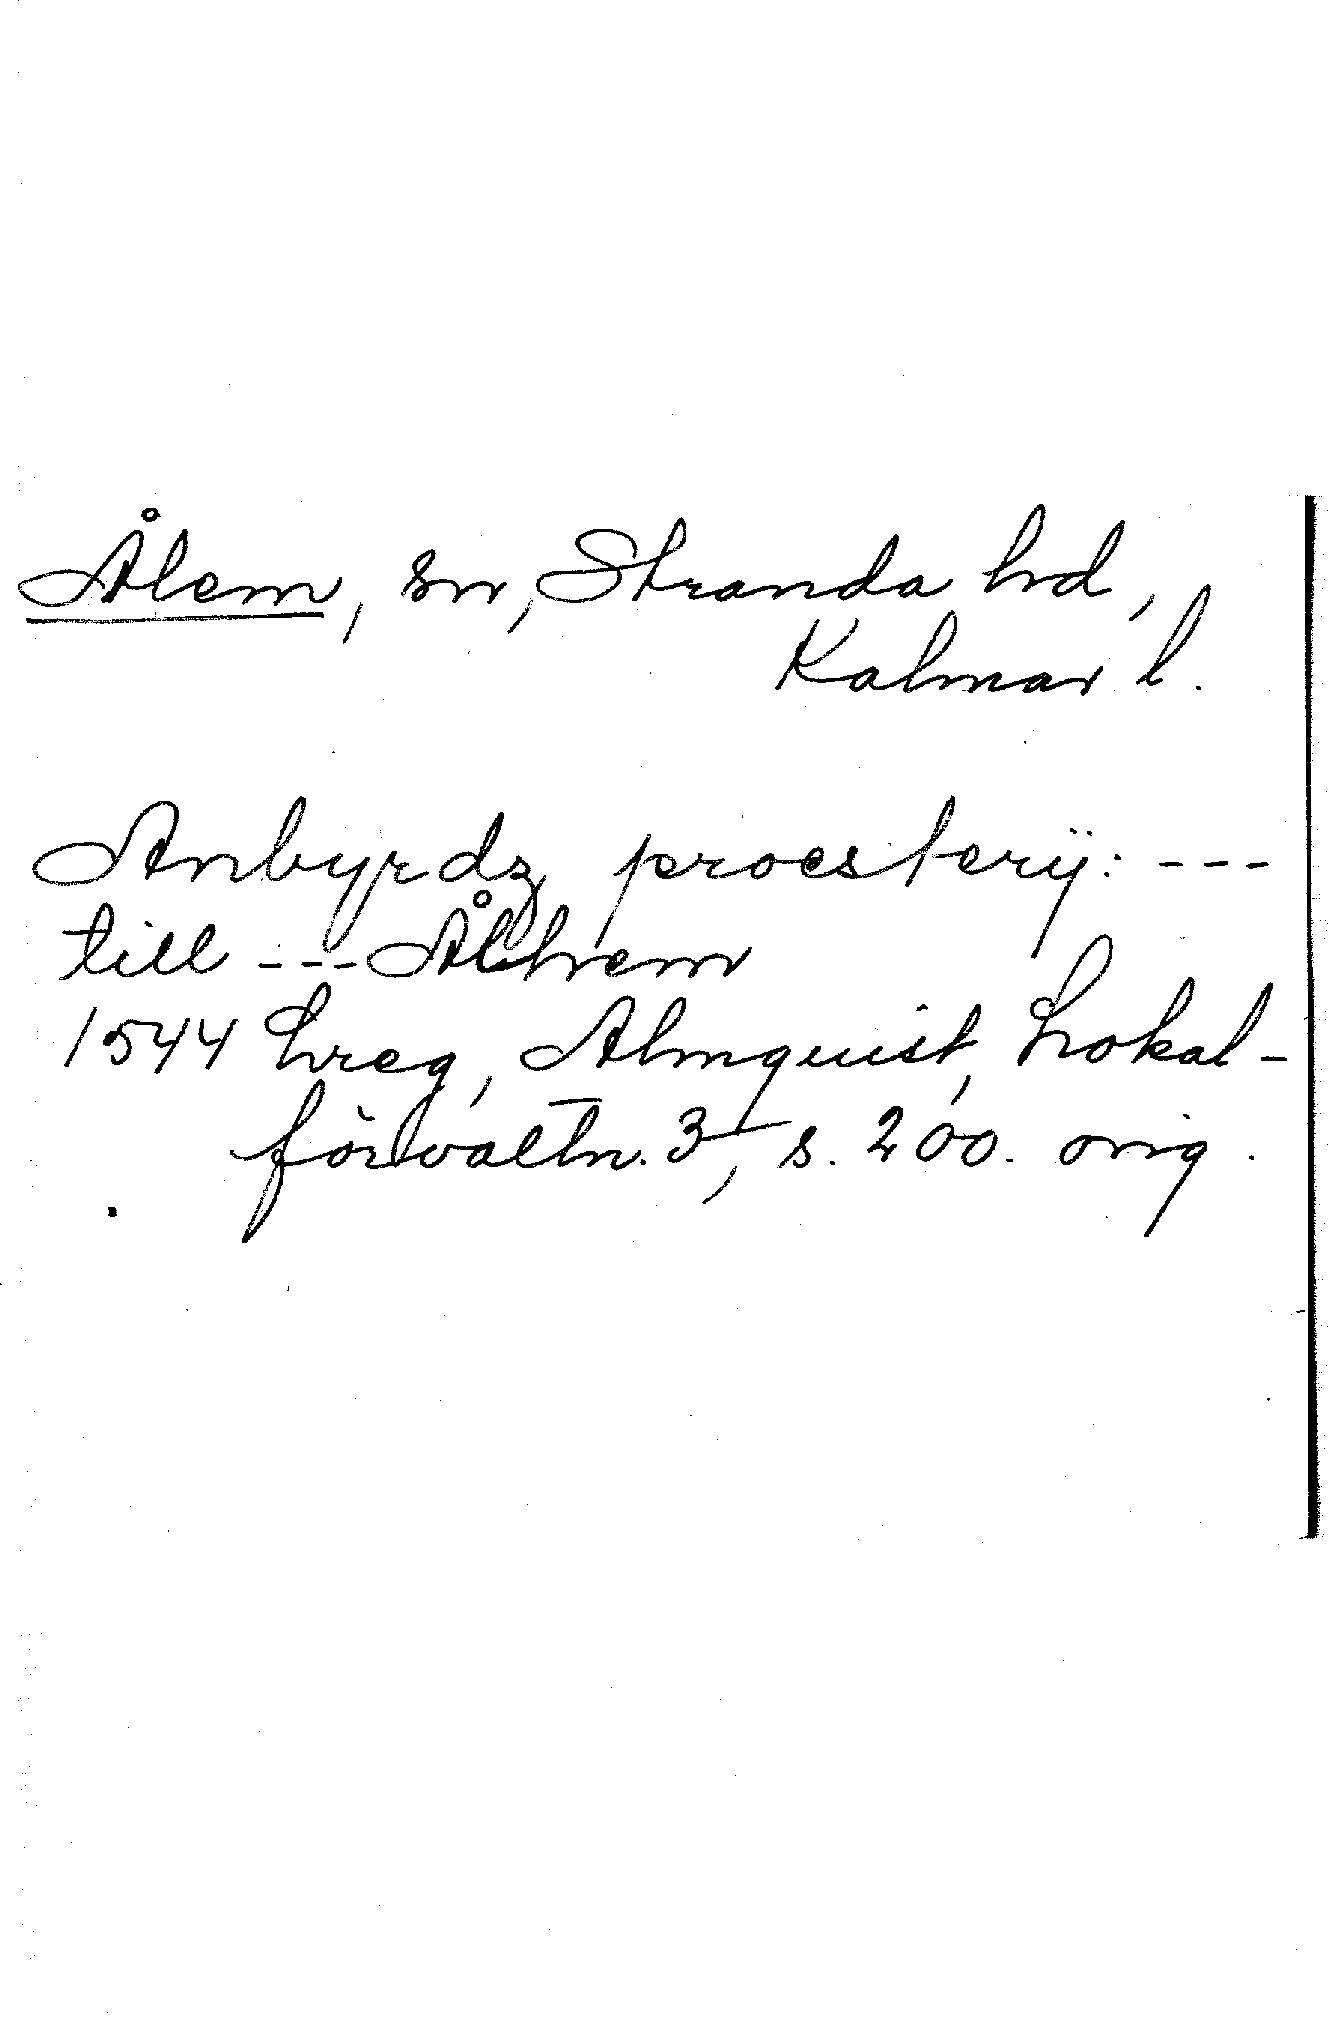 Ålem, sn, Stranda hd,
Kalmar l.
Anbyrdz proesterÿ: ---
till --- Ålhem
1544 Lreg, Almquist, Lokal-
förvaltn. 3, s. 200. orig.